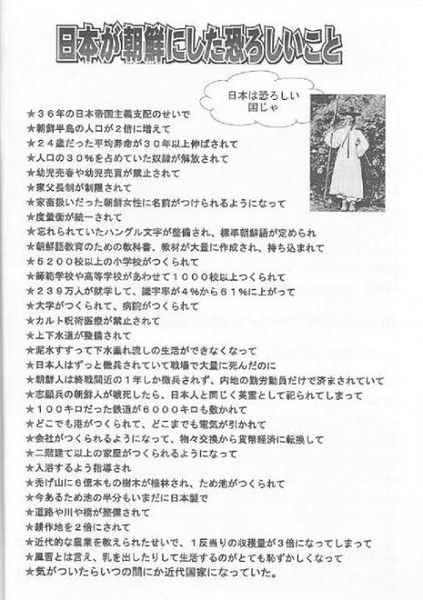 日本が朝鮮にした恐ろしいこと
日本は恐ろしい
国じゃ
★36年の日本帝国主義支配のせいで
★朝鮮半島の人口が2倍に増えて
★24歳だった平均寿命が30年以上伸ばされて
★人口の30%を占めていた奴隷が解放されて
★幼児売春や幼児売買が禁止されて
★家父長制が制限されて
★家畜扱いだった朝鮮女性に名前がつけられるようになって
★度量衡が統一されて
★忘れられていたハングル文字が整備され、標準朝鮮語が定められ
★朝鮮語教育のための教科書、教材が大量に作成され、持ち込まれて
★5200校以上の小学校がつくられて
★師範学校や高等学校があわせて1000校以上つくられて
★239万人が就学して、識字率が4%から61%に上がって
★大学がつくられて、病院がつくられて
★カルト呪術医療が禁止されて
★上下水道が整備されて
★泥水すすって下水垂れ流しの生活ができなくなって
★日本人はずっと徴兵されていて戦場で大量に死んだのに
★朝鮮人は終戦間近の1年しか徴兵されず、内地の勤労動員だけで済まされていて
★志願兵の朝鮮人が戦死したら、日本人と同じく英霊として祀られてしまって
★100キロだった鉄道が6000キロも敷かれて
★どこでも港がつくられて、どこまでも電気が引かれて
★会社がつくられるようになって、物々交換から貨幣経済に転換して
★二階建て以上の家屋がつくられるようになって
★入浴するよう指導され
★禿げ山に6億本もの樹木が植林され、ため池がつくられて
★今あるため池の半分もいまだに日本製で
★道路や川や橋が整備されて
★耕作地を2倍にされて
★近代的な農業を教えられたせいで、1反当りの収穫量が3倍になってしまって
★風習とは言え、乳を出したりして生活するのがとても恥ずかしくなって
★気がついたらいつの間にか近代国家になっていた。